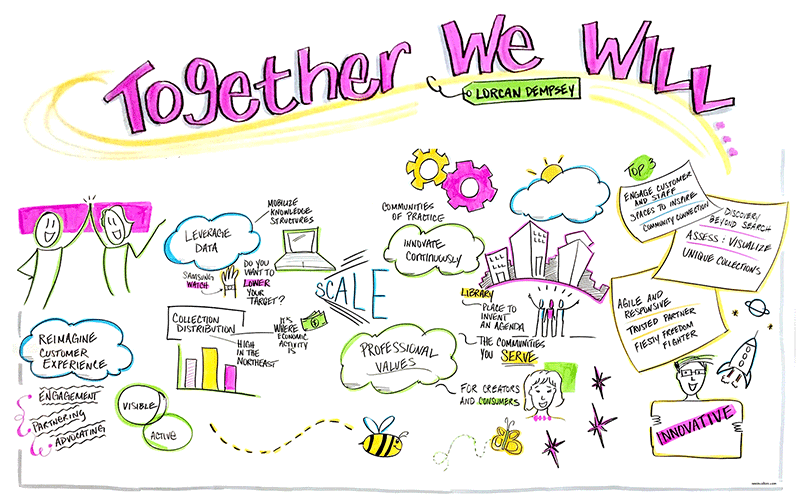 TOGETHER WE WILL
LORCAN DEMPSEY
LEVERAGE
DATA
MOBILIZE
KNOWLEDGE
STRUCTURES
SAMSUNG
WATCH
DO YOU
WANT TO
LOWER
YOUR
TARGET?
COLLECTION
DISTRIBUTION
IT'S
WHERE
ECONOMIC
ACTIVITY
IS
HIGH
IN THE
NORTHEAST
REIMAGINE
CUSTOMER
EXPERIENCE
ENGAGEMENT
PARTNERING
ADVOCATING
VISIBLE
ACTIVE
SCALE
COMMUNITIES
OF PRACTICE
INNOVATE
CONTINUOUSLY
LIBRARY
PLACE TO
INVENT
AN AGENDA
PROFESSIONAL
VALUES
THE COMMUNITIES
YOU SERVE
FOR CREATORS
AND CONSUMERS
TOP 3
ENGAGE CUSTOMER
AND STAFF
SPACES TO INSPIRE
COMMUNITY CONNECTION
DISCOVERY
BEYOND SEARCH
ASSESS : VISUALIZE
UNIQUE COLLECTIONS
AGILE AND
RESPONSIVE
TRUSTED PARTNER
FIESTY FREEDOM
FIGHTER
INNOVATIVE